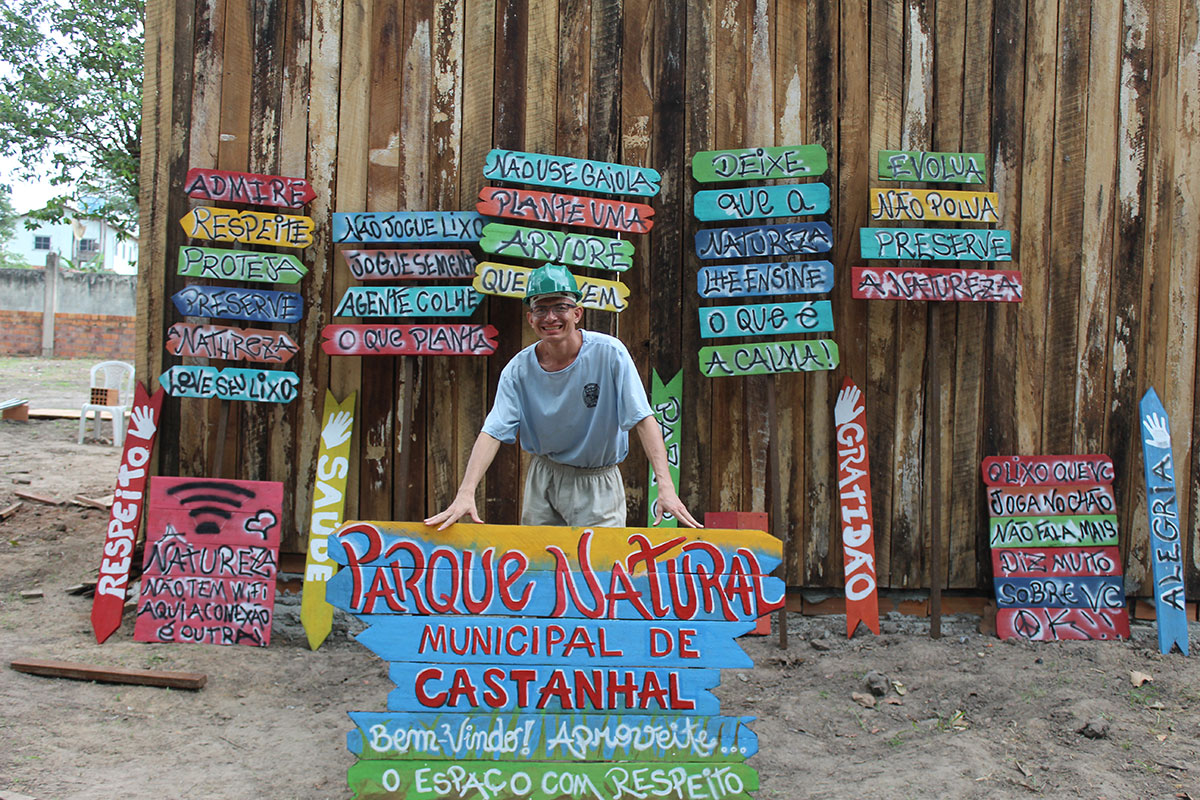 ADMIRE
RESPEITE
PROTEJA
PRESERVE
A NATUREZA
LOVE SEU LIXO
NÃO JOGUE LIXO
JOGUE SEMENTE
A GENTE COLHE
O QUE PLANTA
NÃO USE GAIOLA
PLANTE UMA
ARVORE
QUE
EM
DEIXE
QUE A
NATUREZA
LHE ENSINE
O QUE É
A CALMA!
EVOLUA
NÃO POLUA
PRESERVE
A NATUREZA
RESPEITO
A
NATUREZA
NÃO TEM WIFI
AQUI A CONEXÃO
É OUTRA!
SAÚDE
GRATIDÃO
O LIXO QUE VC
JOGA NO CHÃO
NÃO FALA, MAIS
DIZ MUITO
SOBRE VC
OK!!
ALEGRIA
PARQUE NATURAL
MUNICIPAL DE
CASTANHAL
BEM-VINDO! APROVEITE...
O ESPAÇO COM RESPEITO